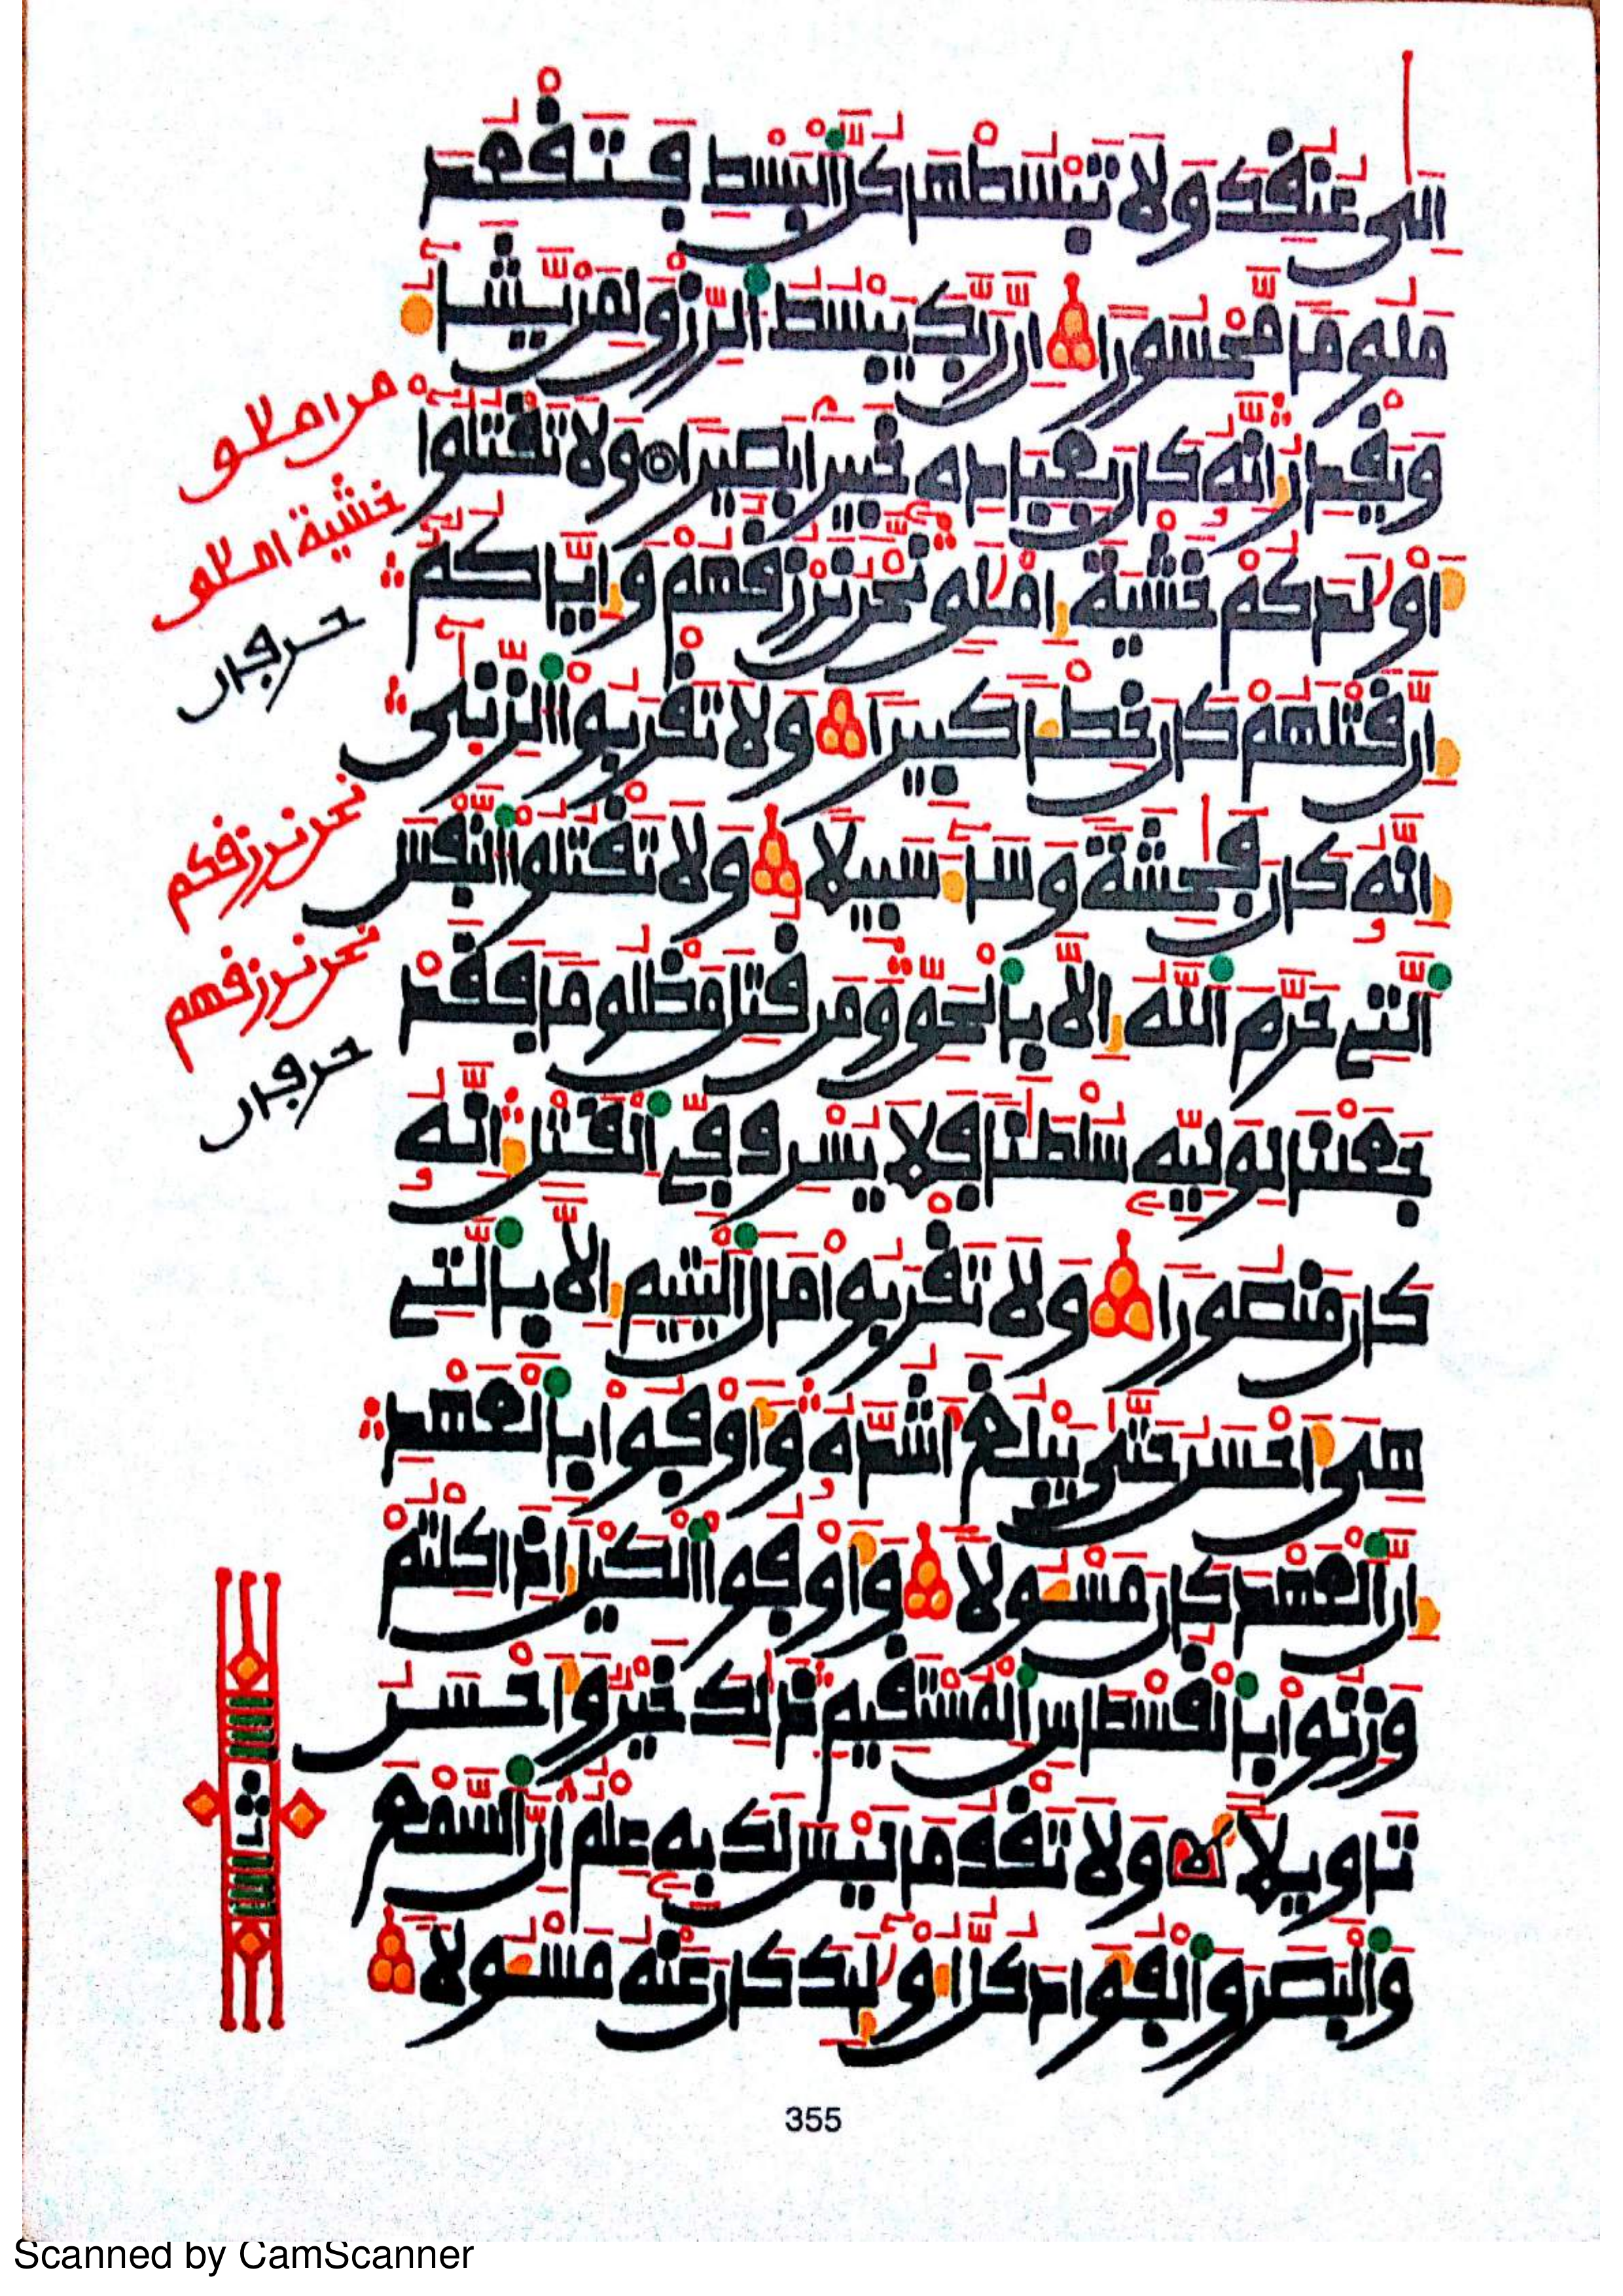 إِلَىٰ عُنُقِكَ وَلَا تَبْسُطْهَا كُلَّ اَلْبَسْطِ فَتَقْعُدَ
مَلُوماً مَّحْسُوراً اِنَّ رَبَّكَ يَبْسُطُ اُلرِّزْقَ لِمَنْ يَّشَآءُ
وَيَقْدِرُ إِنَّهُ كَانَ بِعِبَادِهِ خَبِيراً بَصِيراً وَلَا تَقْتُلُوٓاْ
أَوْلَٰدَكُمْ خَشْيَةَ إِمْلَٰقٍ نَّحْنُ نَرْزُقُهُمْ وَإِيَّاكُمُۥٓ
إِنَّ قَتْلَهُمْ كَانَ خِطْـٔاً كَبِيراً وَلَا تَقْرَبُواْ اُلزِّنَىٰٓ
إِنَّهُ كَانَ فَٰحِشَةً وَسَآءَ سَبِيلاً وَلَا تَقْتُلُواْ اُلنَّفْسَ
اَلتِے حَرَّمَ اَللَّهُ إِلَّا بِالْحَقِّ وَمَن قُتِلَ مَظْلُوماً فَقَدْ
جَعَلْنَا لِوَلِيِّهِ سُلْطَٰناً فَلَا يُسْرِف فِّے اِلْقَتْلِ إِنَّهُ
كَانَ مَنصُوراً وَلَا تَقْرَبُواْ مَالَ اَلْيَتِيمِ إِلَّا بِالتِے
هِيَ أَحْسَنُ حَتَّىٰ يَبْلُغَ أَشُدَّهُ وَأَوْفُواْ بِالْعَهْدِ
إِنَّ اَلْعَهْدَ كَانَ مَسْـُٔولاً وَأَوْفُواْ اُلْكَيْلَ إِذَا كِلْتُمْ
وَزِنُواْ بِالْقُسْطَاسِ اِلْمُسْتَقِيمِ ذَٰلِكَ خَيْرٌ وَأَحْسَنُ
تَأْوِيلاً وَلَا تَقْفُ مَا لَيْسَ لَكَ بِهِ عِلْمٌ اِنَّ اَلسَّمْعَ
وَالْبَصَرَ وَالْفُؤَادَ كُلُّ أُوْلَٰٓئِكَ كَانَ عَنْهُ مَسْـُٔولاً
من املٰق
خشية املٰق
حرفان
نحن نرزقكم
نحن نرزقهم
حرفان
355
Scanned by CamScanner